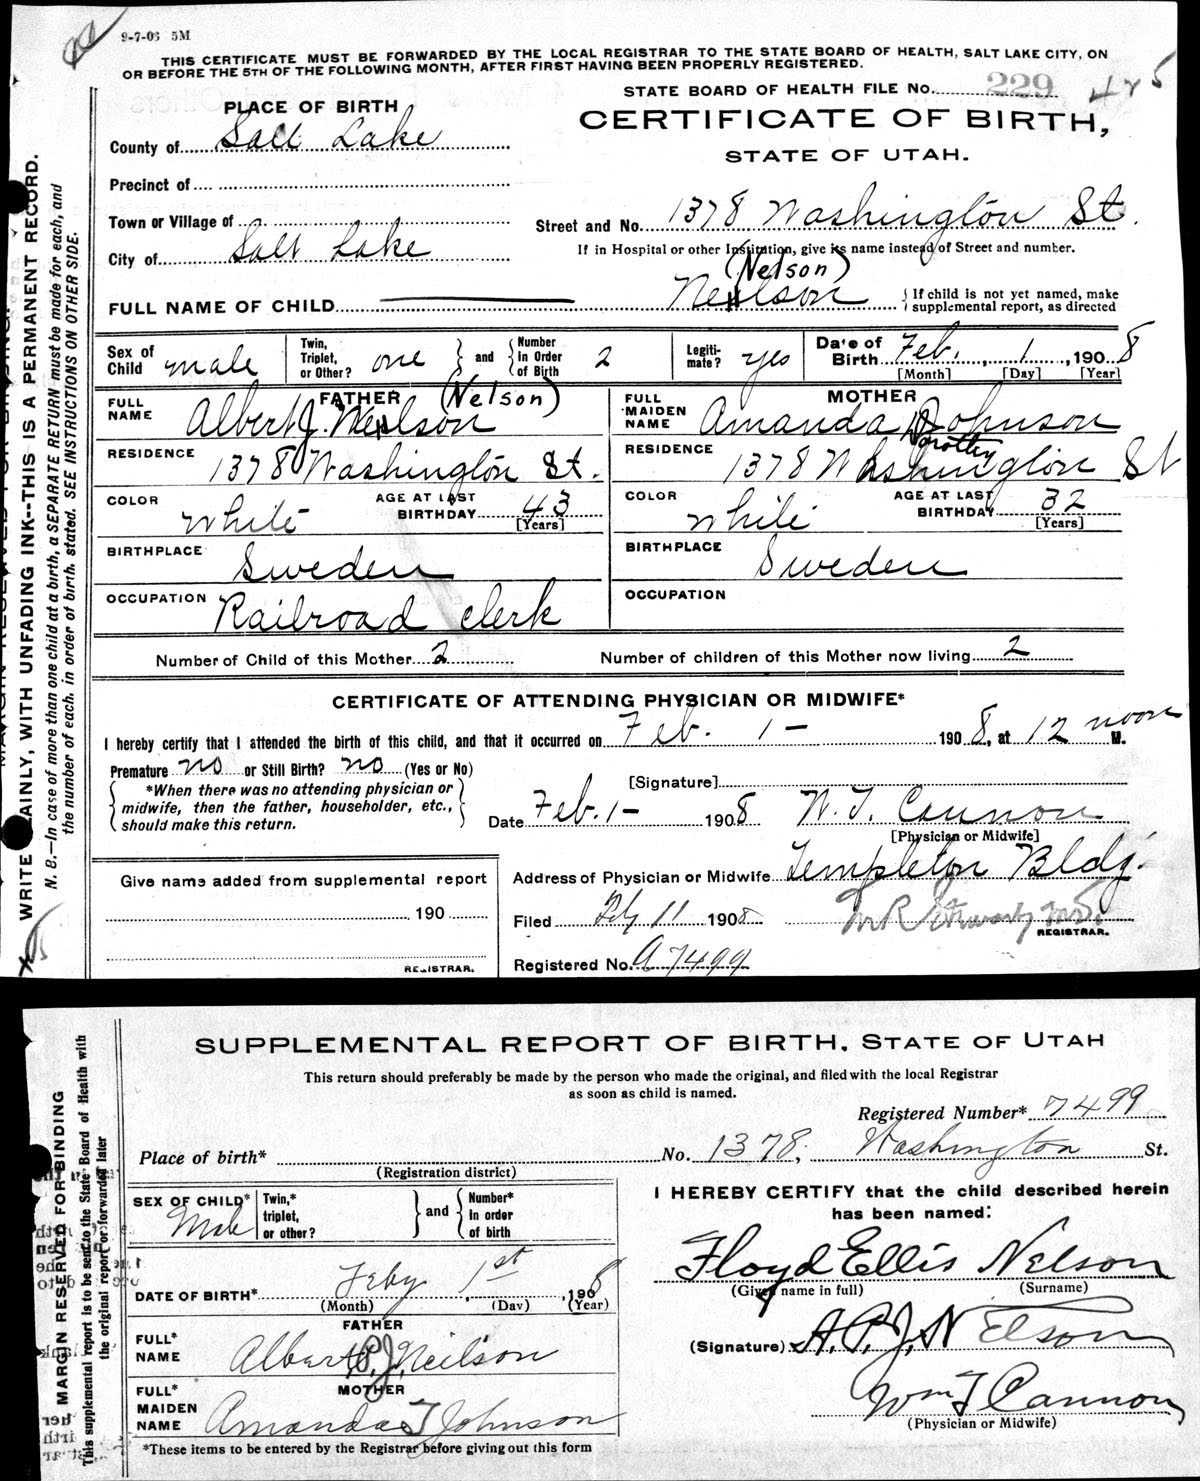 9-7-06 5M
THIS CERTIFICATE MUST BE FORWARDED BY THE LOCAL REGISTRAR TO THE STATE BOARD OF HEALTH, SALT LAKE CITY, ON
OR BEFORE THE 5TH OF THE FOLLOWING MONTH, AFTER FIRST HAVING BEEN PROPERLY REGISTERED.
STATE BOARD OF HEALTH FILE No. 229 425
PLACE OF BIRTH
CERTIFICATE OF BIRTH,
STATE OF UTAH.
County of Salt Lake
Precinct of
Town or Village of
Street and No. 1378 Washington St.
City of Salt Lake
If in Hospital or other Institution, give its name instead of Street and number.
(Nelson)
FULL NAME OF CHILD Neilson
If child is not yet named, make
supplemental report, as directed
Sex of Child male
Twin, Triplet, or Other? one and Number In Order of Birth 2
Legiti-mate? yes
Date of Birth Feb. 1, 1908
[Month] [Day] [Year]
FATHER
FULL NAME Albert J. Neilson (Nelson)
RESIDENCE 1378 Washington St.
COLOR White
AGE AT LAST BIRTHDAY 43
[Years]
BIRTHPLACE Sweden
OCCUPATION Railroad clerk
MOTHER
FULL MAIDEN NAME Amanda Dorothy Johnson
RESIDENCE 1378 Washington St
COLOR White
AGE AT LAST BIRTHDAY 32
[Years]
BIRTHPLACE Sweden
OCCUPATION
Number of Child of this Mother 2
Number of children of this Mother now living 2
CERTIFICATE OF ATTENDING PHYSICIAN OR MIDWIFE*
I hereby certify that I attended the birth of this child, and that it occurred on Feb. 1 - 1908, at 12 noon M.
Premature no or Still Birth? no (Yes or No)
*When there was no attending physician or
midwife, then the father, householder, etc.,
should make this return.
[Signature]
Date Feb. 1 - 1908 W. T. Cannon
[Physician or Midwife]
Give name added from supplemental report
190
REGISTRAR.
Address of Physician or Midwife Templeton Bldg.
Filed Feb 11 1908
REGISTRAR.
Registered No. A 7499
WRITE PLAINLY, WITH UNFADING INK--THIS IS A PERMANENT RECORD.
N. B.—In case of more than one child at a birth, a SEPARATE RETURN must be made for each, and
the number of each, in order of birth, stated. SEE INSTRUCTIONS ON OTHER SIDE.
SUPPLEMENTAL REPORT OF BIRTH, STATE OF UTAH
This return should preferably be made by the person who made the original, and filed with the local Registrar
as soon as child is named.
Registered Number* 7499
Place of birth* No. 1378, Washington St.
(Registration district)
SEX OF CHILD* Male
Twin,* triplet, or other? and Number* In order of birth
DATE OF BIRTH* Feby 1st, 1908
(Month) (Day) (Year)
FATHER
FULL* NAME Albert P. J. Neilson
MOTHER
FULL* MAIDEN NAME Amanda J Johnson
*These items to be entered by the Registrar before giving out this form
I HEREBY CERTIFY that the child described herein
has been named:
Floyd Ellis Nelson
(Given name in full) (Surname)
(Signature) A. P. J. Nelson
Wm T Cannon
(Physician or Midwife)
MARGIN RESERVED FOR BINDING
This supplemental report is to be sent to the State Board of Health with
the original report or forwarded later